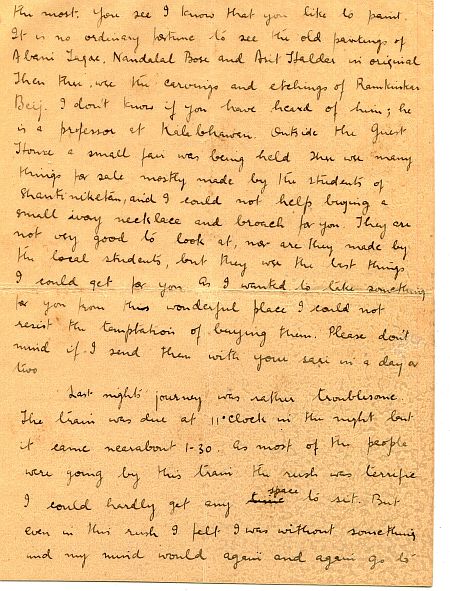 the most. You see I know that you like to paint.
It is no ordinary fortune to see the old paintings of
Abani Tagore, Nandalal Bose and Asit Haldar in original
Then there were the carvings and etchings of Ramkinkar
Beij. I don't know if you have heard of him; he
is a professor at Kalabhawan. Outside the Guest
House a small fair was being held. There were many
things for sale mostly made by the students of
Shantiniketan, and I could not help buying a
small ivory necklace and broach for you. They are
not very good to look at, nor are they made by
the local students, but they were the best things
I could get for you. As I wanted to take something
for you from this wonderful place I could not
resist the temptation of buying them. Please don't
mind if I send them with your sari in a day or
two
Last night's journey was rather troublesome.
The train was due at 11 o'clock in the night but
it came nearabout 1-30. As most of the people
were going by this train the rush was terrific
I could hardly get any space to sit. But
even in this rush I felt I was without something
and my mind would again and again go to